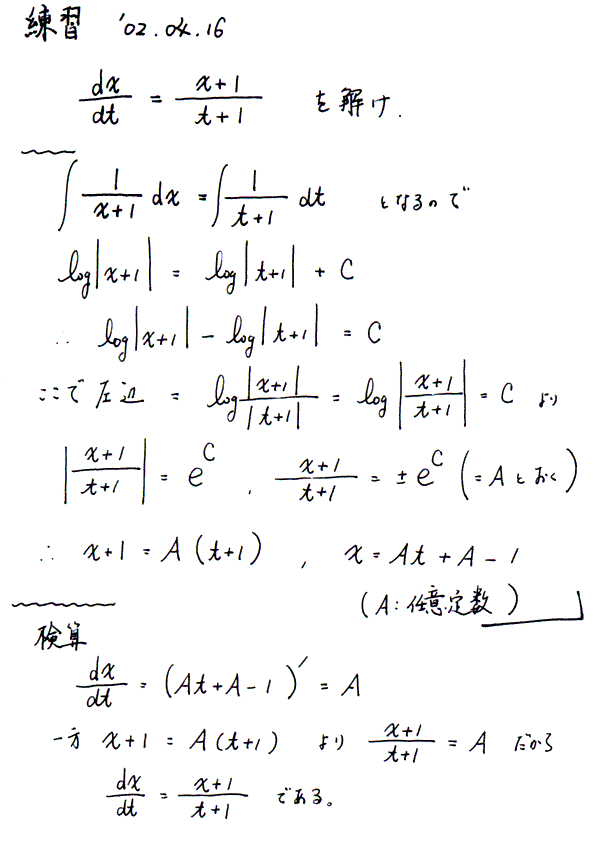 練習 '02.04.16
dx/dt = x+1/t+1 を解け.
∫ 1/x+1 dx = ∫ 1/t+1 dt となるので
log|x+1| = log|t+1| + C
∴ log|x+1| - log|t+1| = C
ここで 左辺 = log |x+1|/|t+1| = log |x+1/t+1| = C より
|x+1/t+1| = e^C , x+1/t+1 = ±e^C (=Aとおく)
∴ x+1 = A(t+1) , x = At + A - 1
(A:任意定数)
検算
dx/dt = (At+A-1)' = A
一方 x+1 = A(t+1) より x+1/t+1 = A だから
dx/dt = x+1/t+1 である。